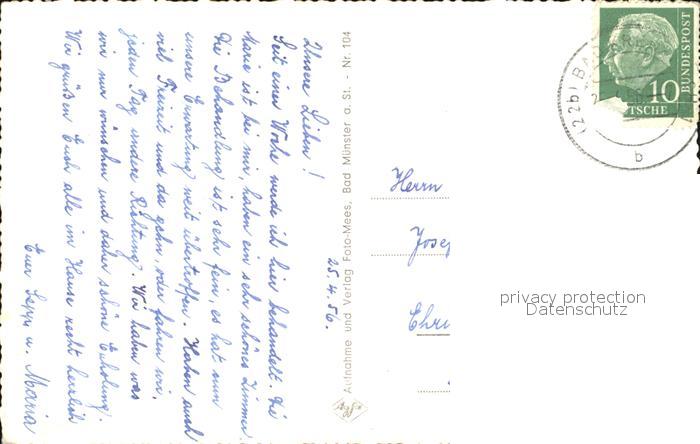 25.4.56.
Unsere Lieben!
Seit einer Woche werde ich hier behandelt. Die
Marie ist bei mir, haben ein sehr schönes Zimmer
Die Behandlung ist sehr fein, es hat nun
unsere Erwartung weit übertroffen. Haben auch
viel Freizeit und da gehn, oder fahren wir,
jeden Tag andere Richtung. Wir haben was
wir nur wünschen und daher schöne Erholung.
Wir grüßen Euch alle im Hause recht herzlich
Euer Sepp u. Maria
Aufnahme und Verlag Foto-Mees, Bad Münster a. St. - Nr. 104
Agfa
Herrn
Josep
Chri
(22b) BAD
b
10
TSCHE
BUNDESPOST
privacy protection
Datenschutz